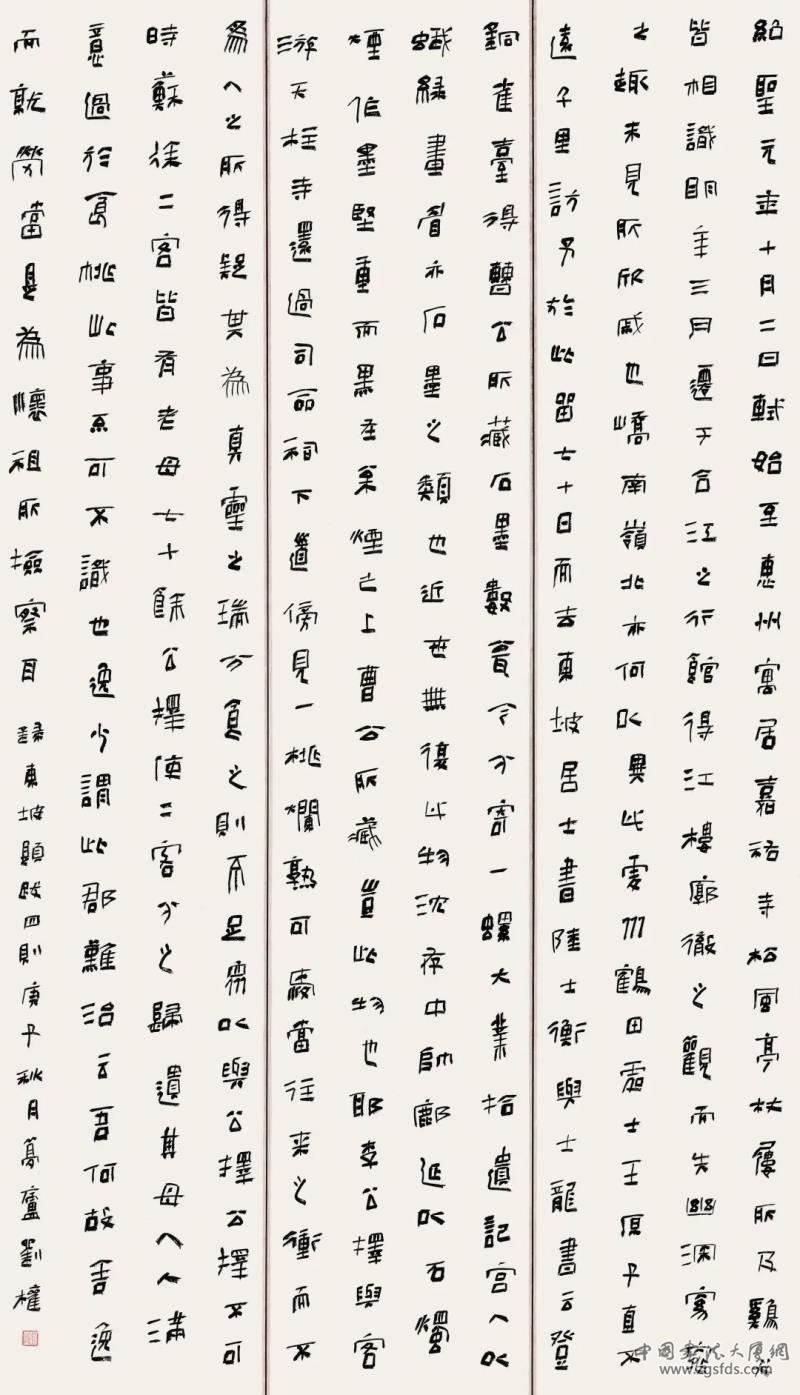 紹聖元年十月二日軾始至惠州寓居嘉祐寺松風亭杖屨所及鷄犬
皆相識明年三月遷于合江之行館得江樓廓徹之觀而失幽深窈窕
之趣未見所欣戚也嶠南嶺北亦何以異此虔州鶴田處士王原子直不
遠千里訪予於此留七十日而去東坡居士書陸士衡與士龍書云登
銅雀臺得曹公所藏石墨數甕今分寄一螺大業拾遺記宮人以
蛾緑畫眉亦石墨之類也近世無復此物沈存中帥鄜延以石燭
煙作墨堅重而黑在松煙之上曹公所藏豈此物也耶李公擇與客
游天柱寺還過司命祠下道傍見一桃爛熟可愛當往來之衝而不
爲人之所得疑其為真靈之瑞分食之則不足衆以與公擇公擇不可
時蘇徐二客皆有老母七十餘公擇使二客分之歸遺其母人人滿
意過於食桃此事不可不識也逸少謂此郡難治云吾何故舍逸
而就勞當是為懷祖所撿察耳 錄東坡題跋四則庚子秋月廬劉權
中國書法大廈網
www.zgsfds.com